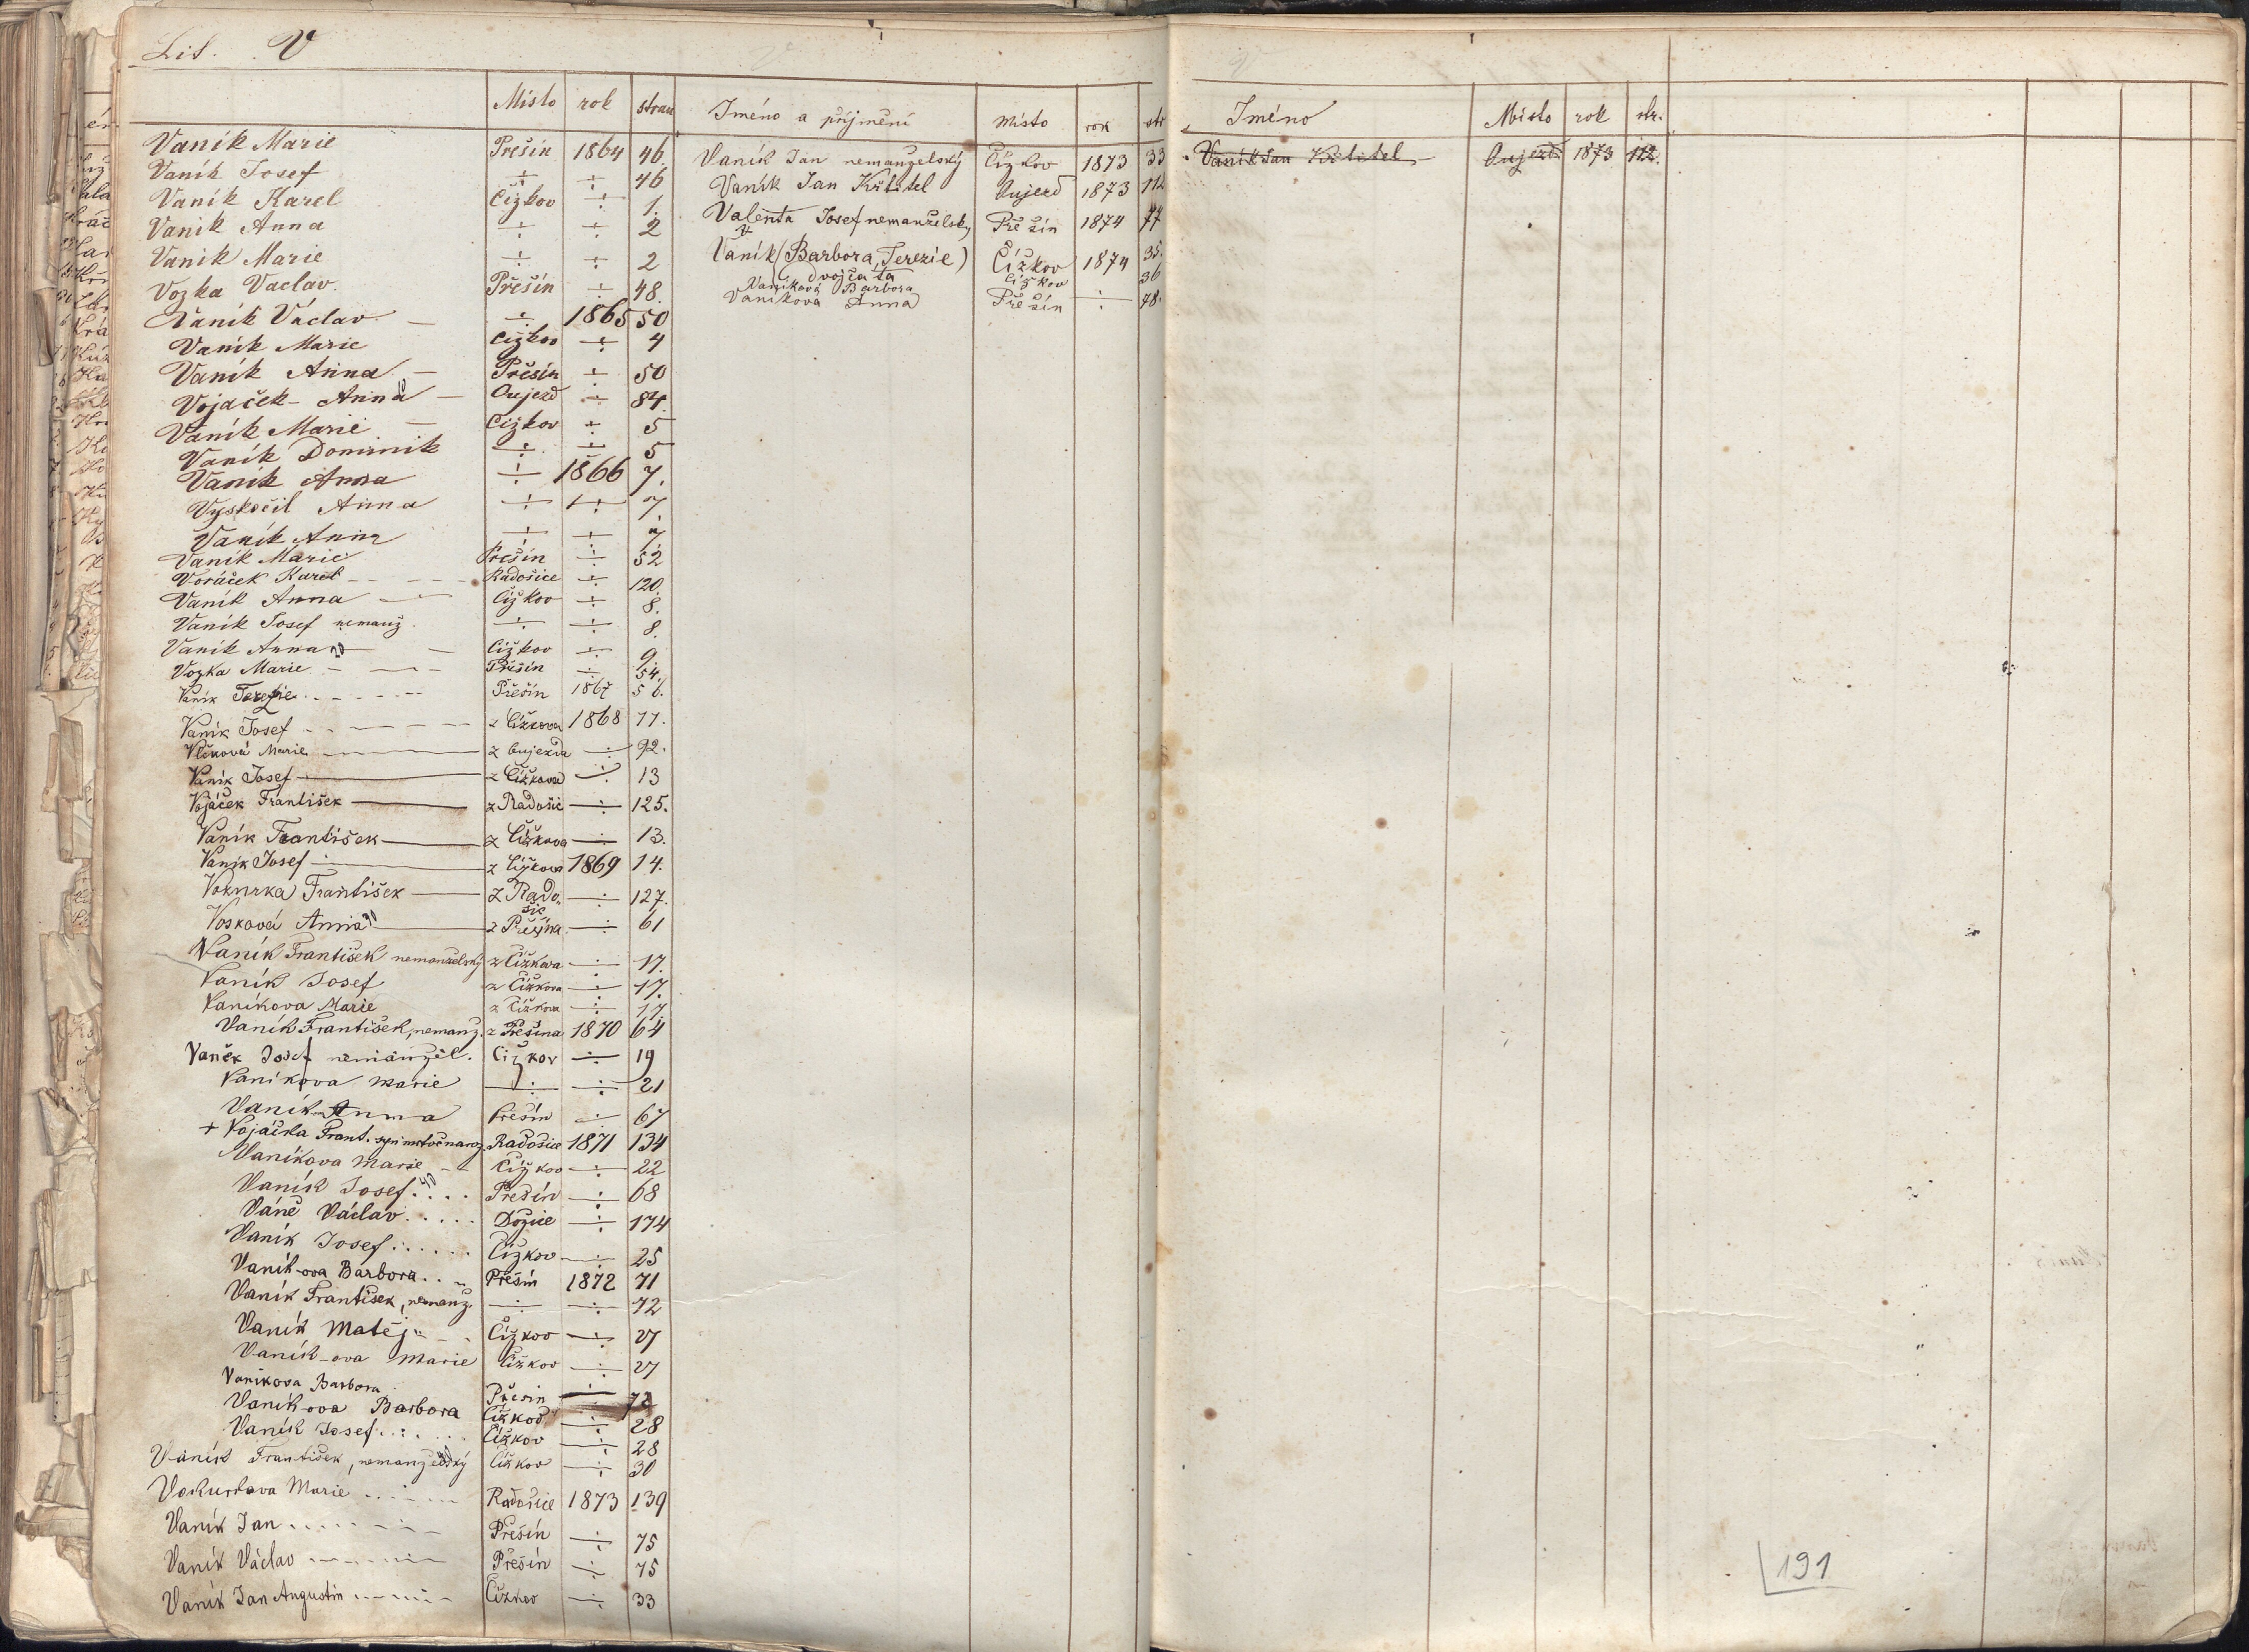 Lit. V
Místo rok stran
Vaník Marie Přešín 1864 46.
Vaník Josef ÷ ÷ 46
Vaník Karel Čížkov ÷ 1.
Vaník Anna ÷ ÷ 2
Vaník Marie ÷ ÷ 2
Vozka Vaclav Přešín ÷ 48.
Vaník Václav — ÷ 1865 50
Vaník Marie Čížkov ÷ 4
Vaník Anna — Přešín ÷ 50
Vojaček Anna — Aujezd ÷ 84
Vaník Marie — Čížkov ÷ 5
Vaník Dominik ÷ ÷ 5
Vaník Anna ÷ 1866 7.
Vyskočil Anna ÷ ÷ 7
Vaník Anna ÷ ÷ 7
Vaník Marie Přešín ÷ 52
Voráček Karel Radošice ÷ 120.
Vaník Anna Čížkov ÷ 8.
Vaník Josef nemanž. ÷ ÷ 8.
Vaník Anna Čížkov ÷ 9
Vozka Marie Přešín ÷ 54.
Vaník Terezie Přešín 1867 56.
Vaník Josef z Čížkova 1868 11.
Vlčková Marie z Aujezda ÷ 92.
Vaník Josef z Čížkova ÷ 13
Vojáček František z Radošic ÷ 125.
Vaník František z Čížkova ÷ 13.
Vaník Josef z Čížkova 1869 14.
Vokurka František z Radošic ÷ 127.
Vosková Anna z Přešína ÷ 61
Vaník František nemanželský z Čížkova ÷ 17.
Vaník Josef z Čížkova ÷ 17.
Vaníkova Marie z Čížkova ÷ 17.
Vaník František, nemanž. z Přešína 1870 64
Vaněk Josef nemanžel. Čížkov ÷ 19
Vaníkova Marie ÷ ÷ 21
Vaník Anna Přešín ÷ 67
+ Vojáčka Frant. syn mrtvě naroz. Radošice 1871 134
Vaníkova Marie Čížkov ÷ 22
Vaník Josef Přešín ÷ 68
Váně Václav Dožice ÷ 174
Vaník Josef Čížkov ÷ 25
Vaník-ova Barbora Přešín 1872 71
Vaník František, nemanž. ÷ ÷ 72
Vaník Matěj Čížkov ÷ 27
Vaník-ova Marie Čížkov ÷ 27
Vaníkova Barbora Přešín ÷ 72
Vaník-ova Barbora Čížkov ÷ 28
Vaník Josef Čížkov ÷ 28
Vaník František, nemanželský Čížkov ÷ 30
Vokurkova Marie Radošice 1873 139
Vaník Jan Přešín ÷ 75
Vaník Václav Přešín ÷ 75
Vaník Jan Augustin Čížkov ÷ 33
Jméno a příjmění místo rok str
Vaník Jan nemanželský Čížkov 1873 33
Vaník Jan Křtitel Aujezd 1873 112
Valenta Josef nemanželsky Přešín 1874 77
Vaník (Barbora, Terezie) Čížkov 1874 35.
dvojčata
Vaníková Barbora Čížkov 36
Vaníkova Anna Přešín ÷ 78.
Jméno Místo rok str.
Vaník Jan Křtitel Aujezd 1873 112.
191